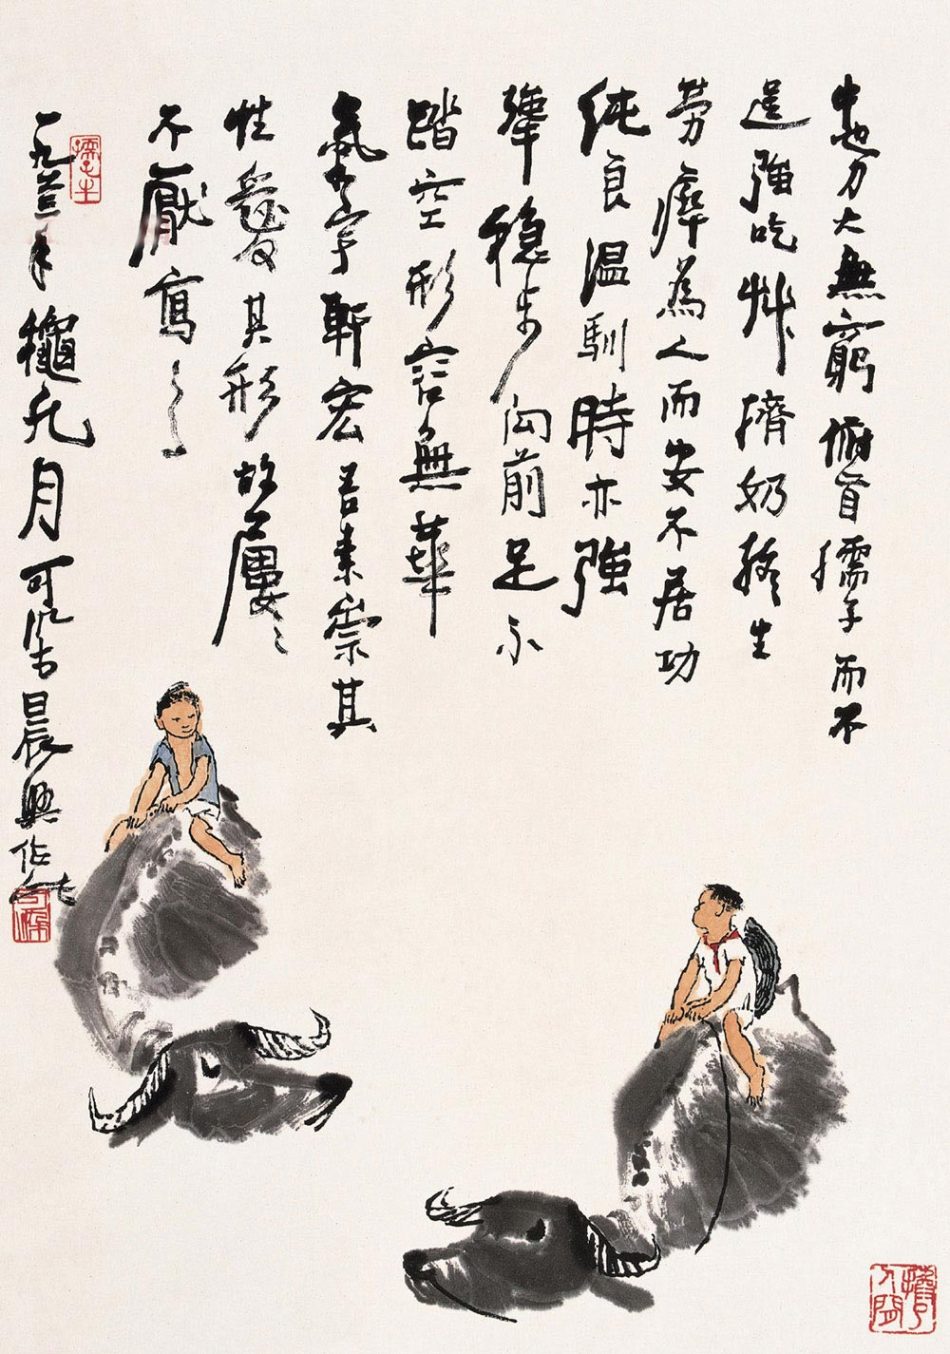 牛也力大無窮俯首孺子而不
逞強吃艸擠奶終生
勞瘁為人而安不居功
純良溫馴時亦強
犟穩步向前足不
踏空形容無華
氣宇軒宏吾素崇其
性愛其形故屢〻
不厭寫之
一九六三年龝九月可染晨興作
孺子牛
可染